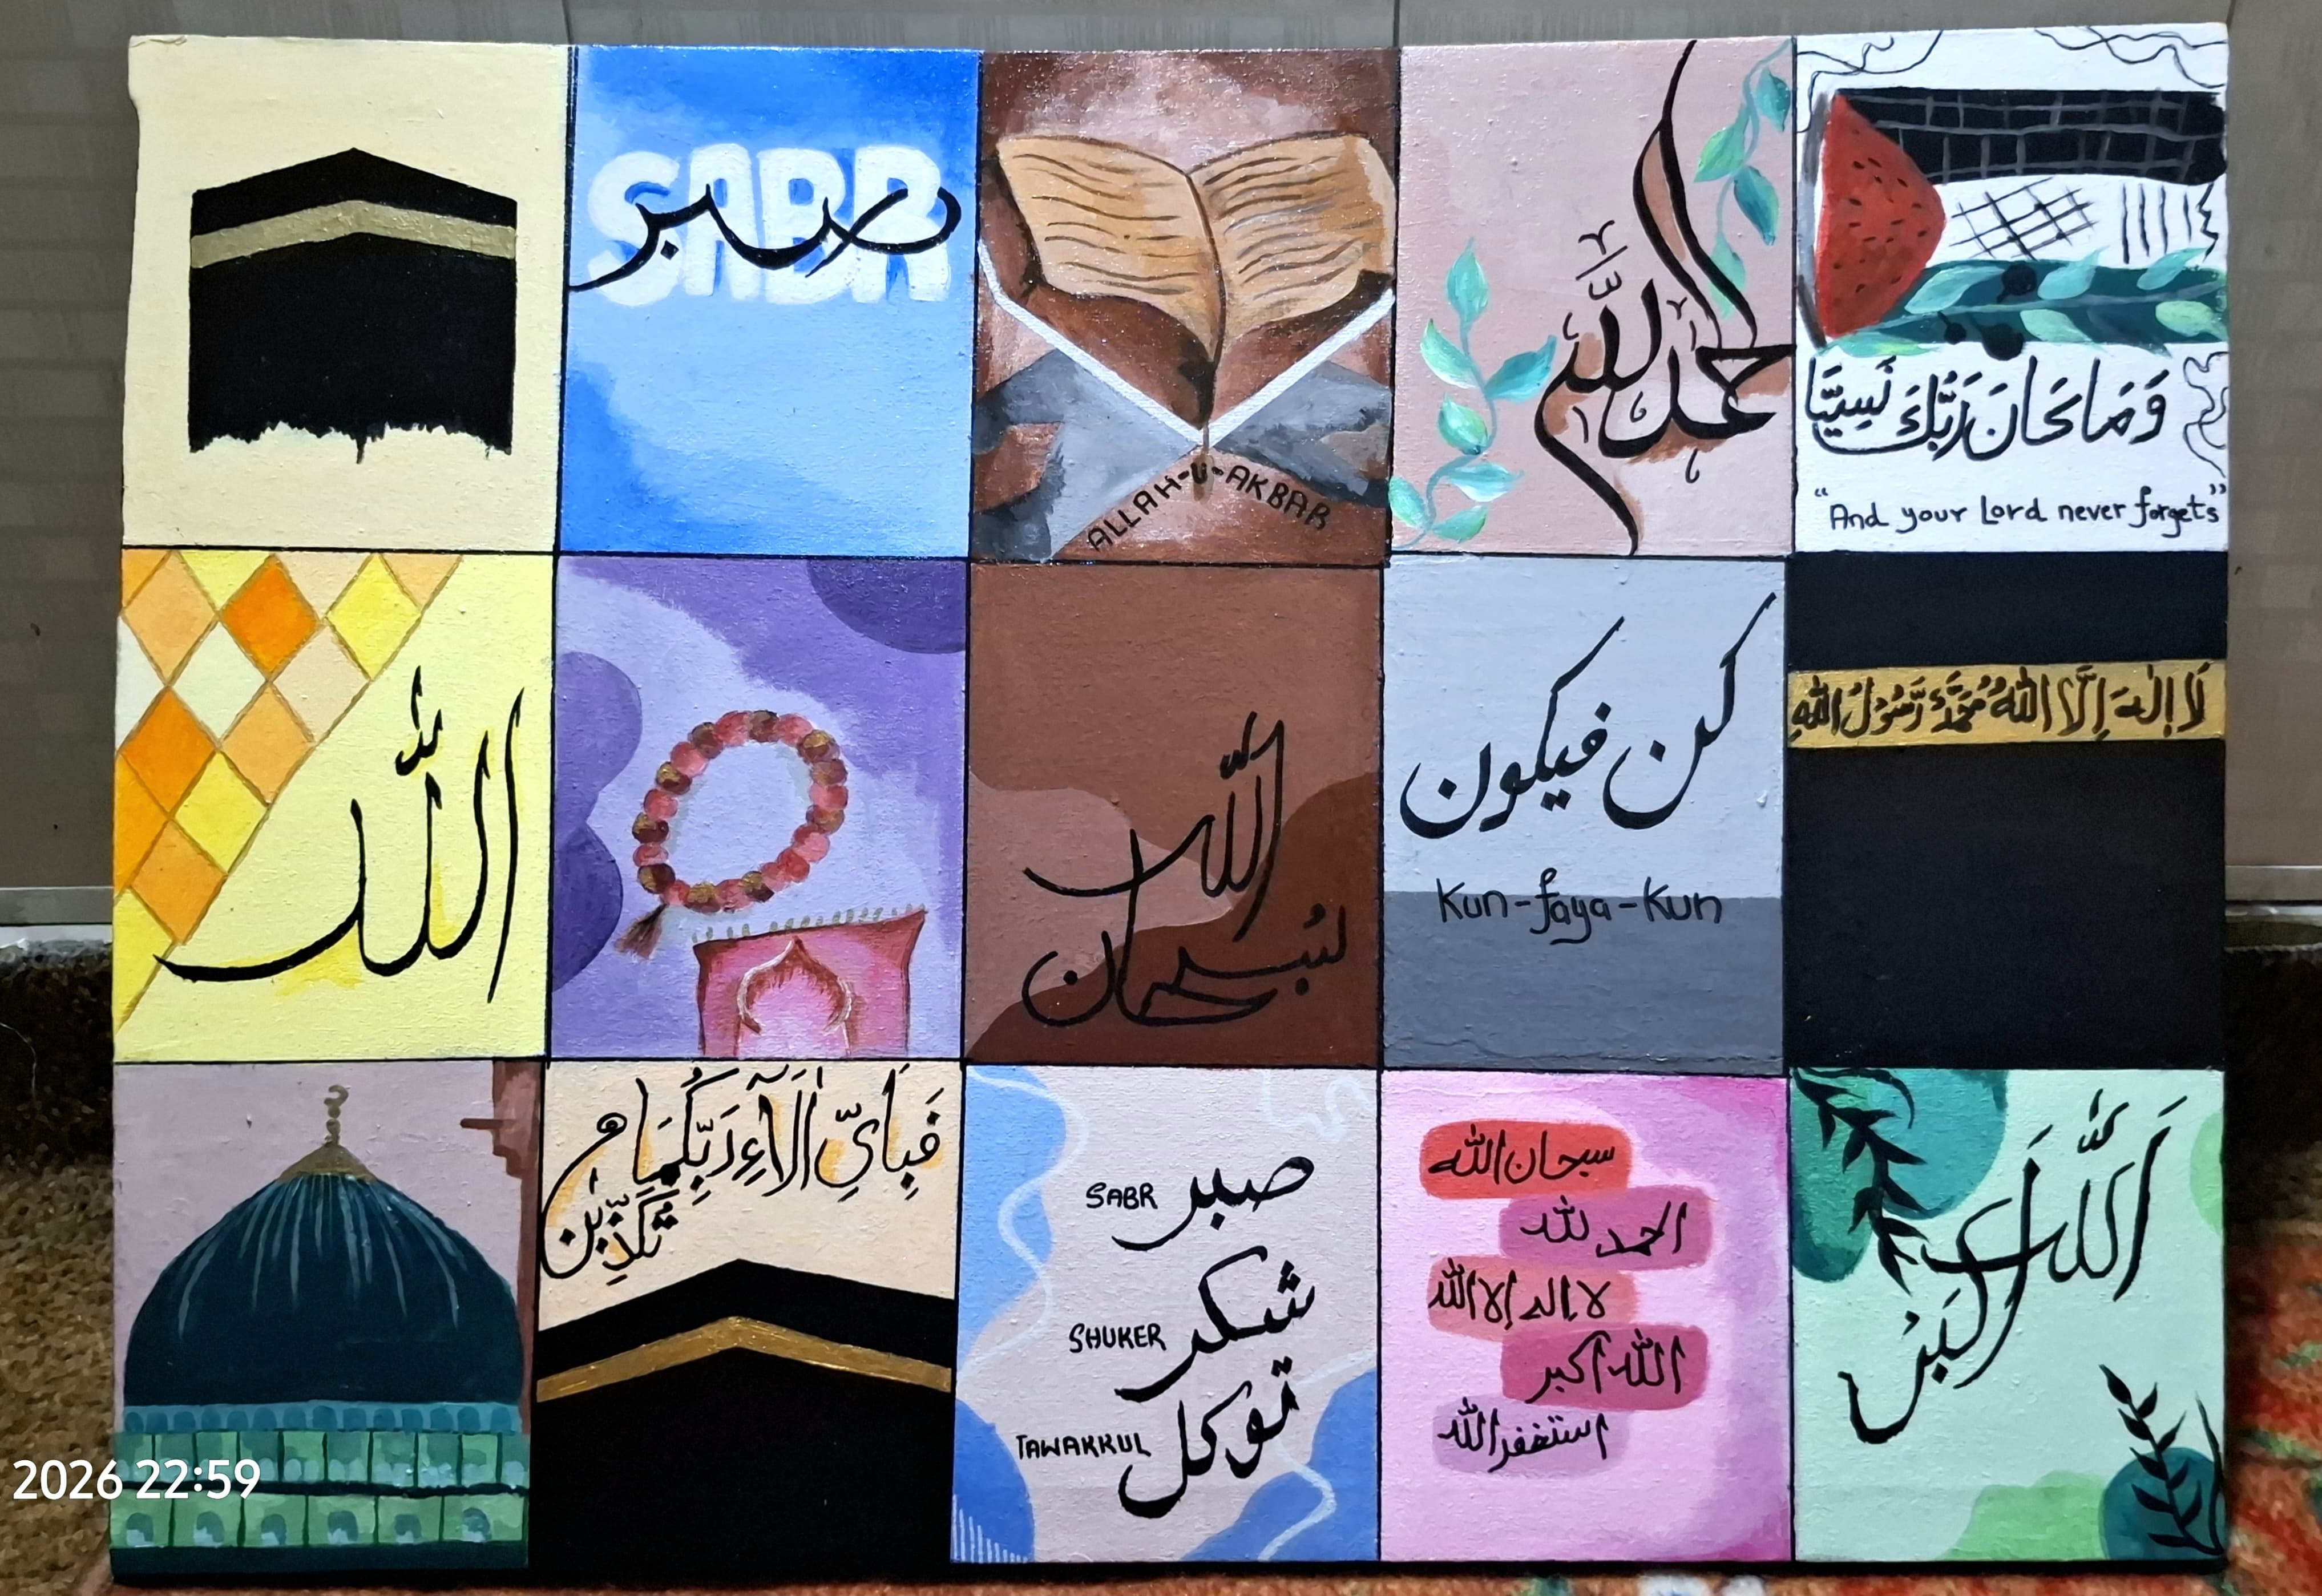 SABR
صبر
ALLAH-U-AKBAR
الحمد لله
وَمَا كَانَ رَبُّكَ نَسِيًّا
"And your Lord never forgets"
الله
الله
سبحان
كن فيكون
Kun-faya-Kun
لَا إِلٰهَ إِلَّا اللهُ مُحَمَّدٌ رَّسُوْلُ اللهِ
فَبِاَيِّ اٰلَآءِ رَبِّكُمَا
تُكَذِّبٰنِ
SABR صبر
SHUKER شكر
TAWAKKUL توكل
سبحان الله
الحمد لله
لا اله الا الله
الله اكبر
استغفر الله
اَللّٰهُ
اَكْبَر
2026 22:59